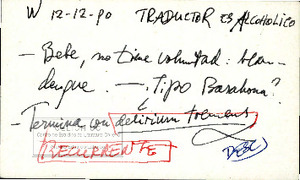 W 12-12-90 TRADUCTOR ES ALCOHOLICO
- Bebe, no tiene voluntad: blan-
dengue. —. Tipo Barahona?
- Termina con delirium tremens
RECURRENTE